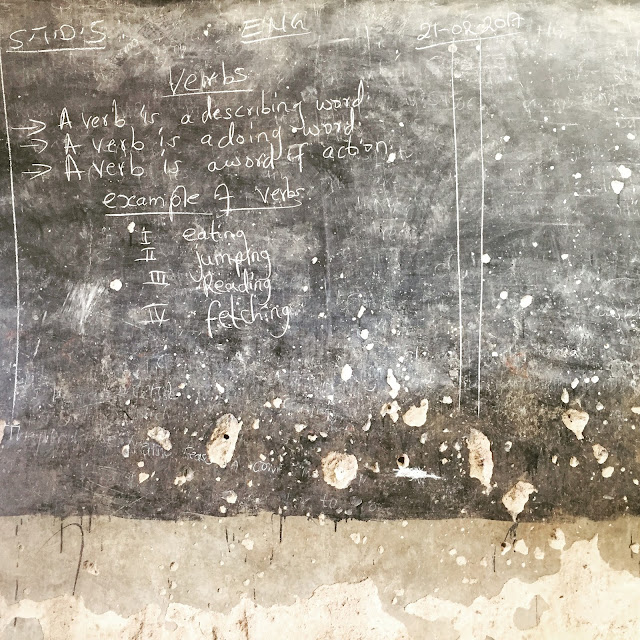 STD'S ENG 21-02-2017
Verbs
→ A verb is a describing word.
→ A verb is a doing word.
→ A verb is a word of action.
example of verbs
I eating
II jumping
III Reading
IV fetching